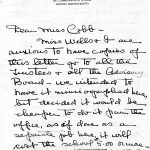 Dear Miss Cobb -
Miss Wells & I are
anxious to have, copies of
this letter go to all the
Trustees & all the Advisory
Board - we intended to
have it mimeographed here
but decided it would be
cheaper to do it from the
office, as if done as a
separate job here, it will
cost the school $5.00 or more